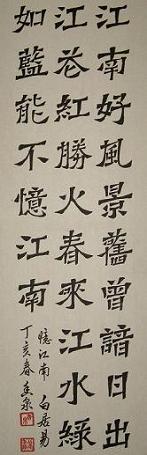 江南好風景舊曾諳日出
江花紅勝火春來江水綠
如藍能不憶江南
憶江南 白居易
丁亥春 泉